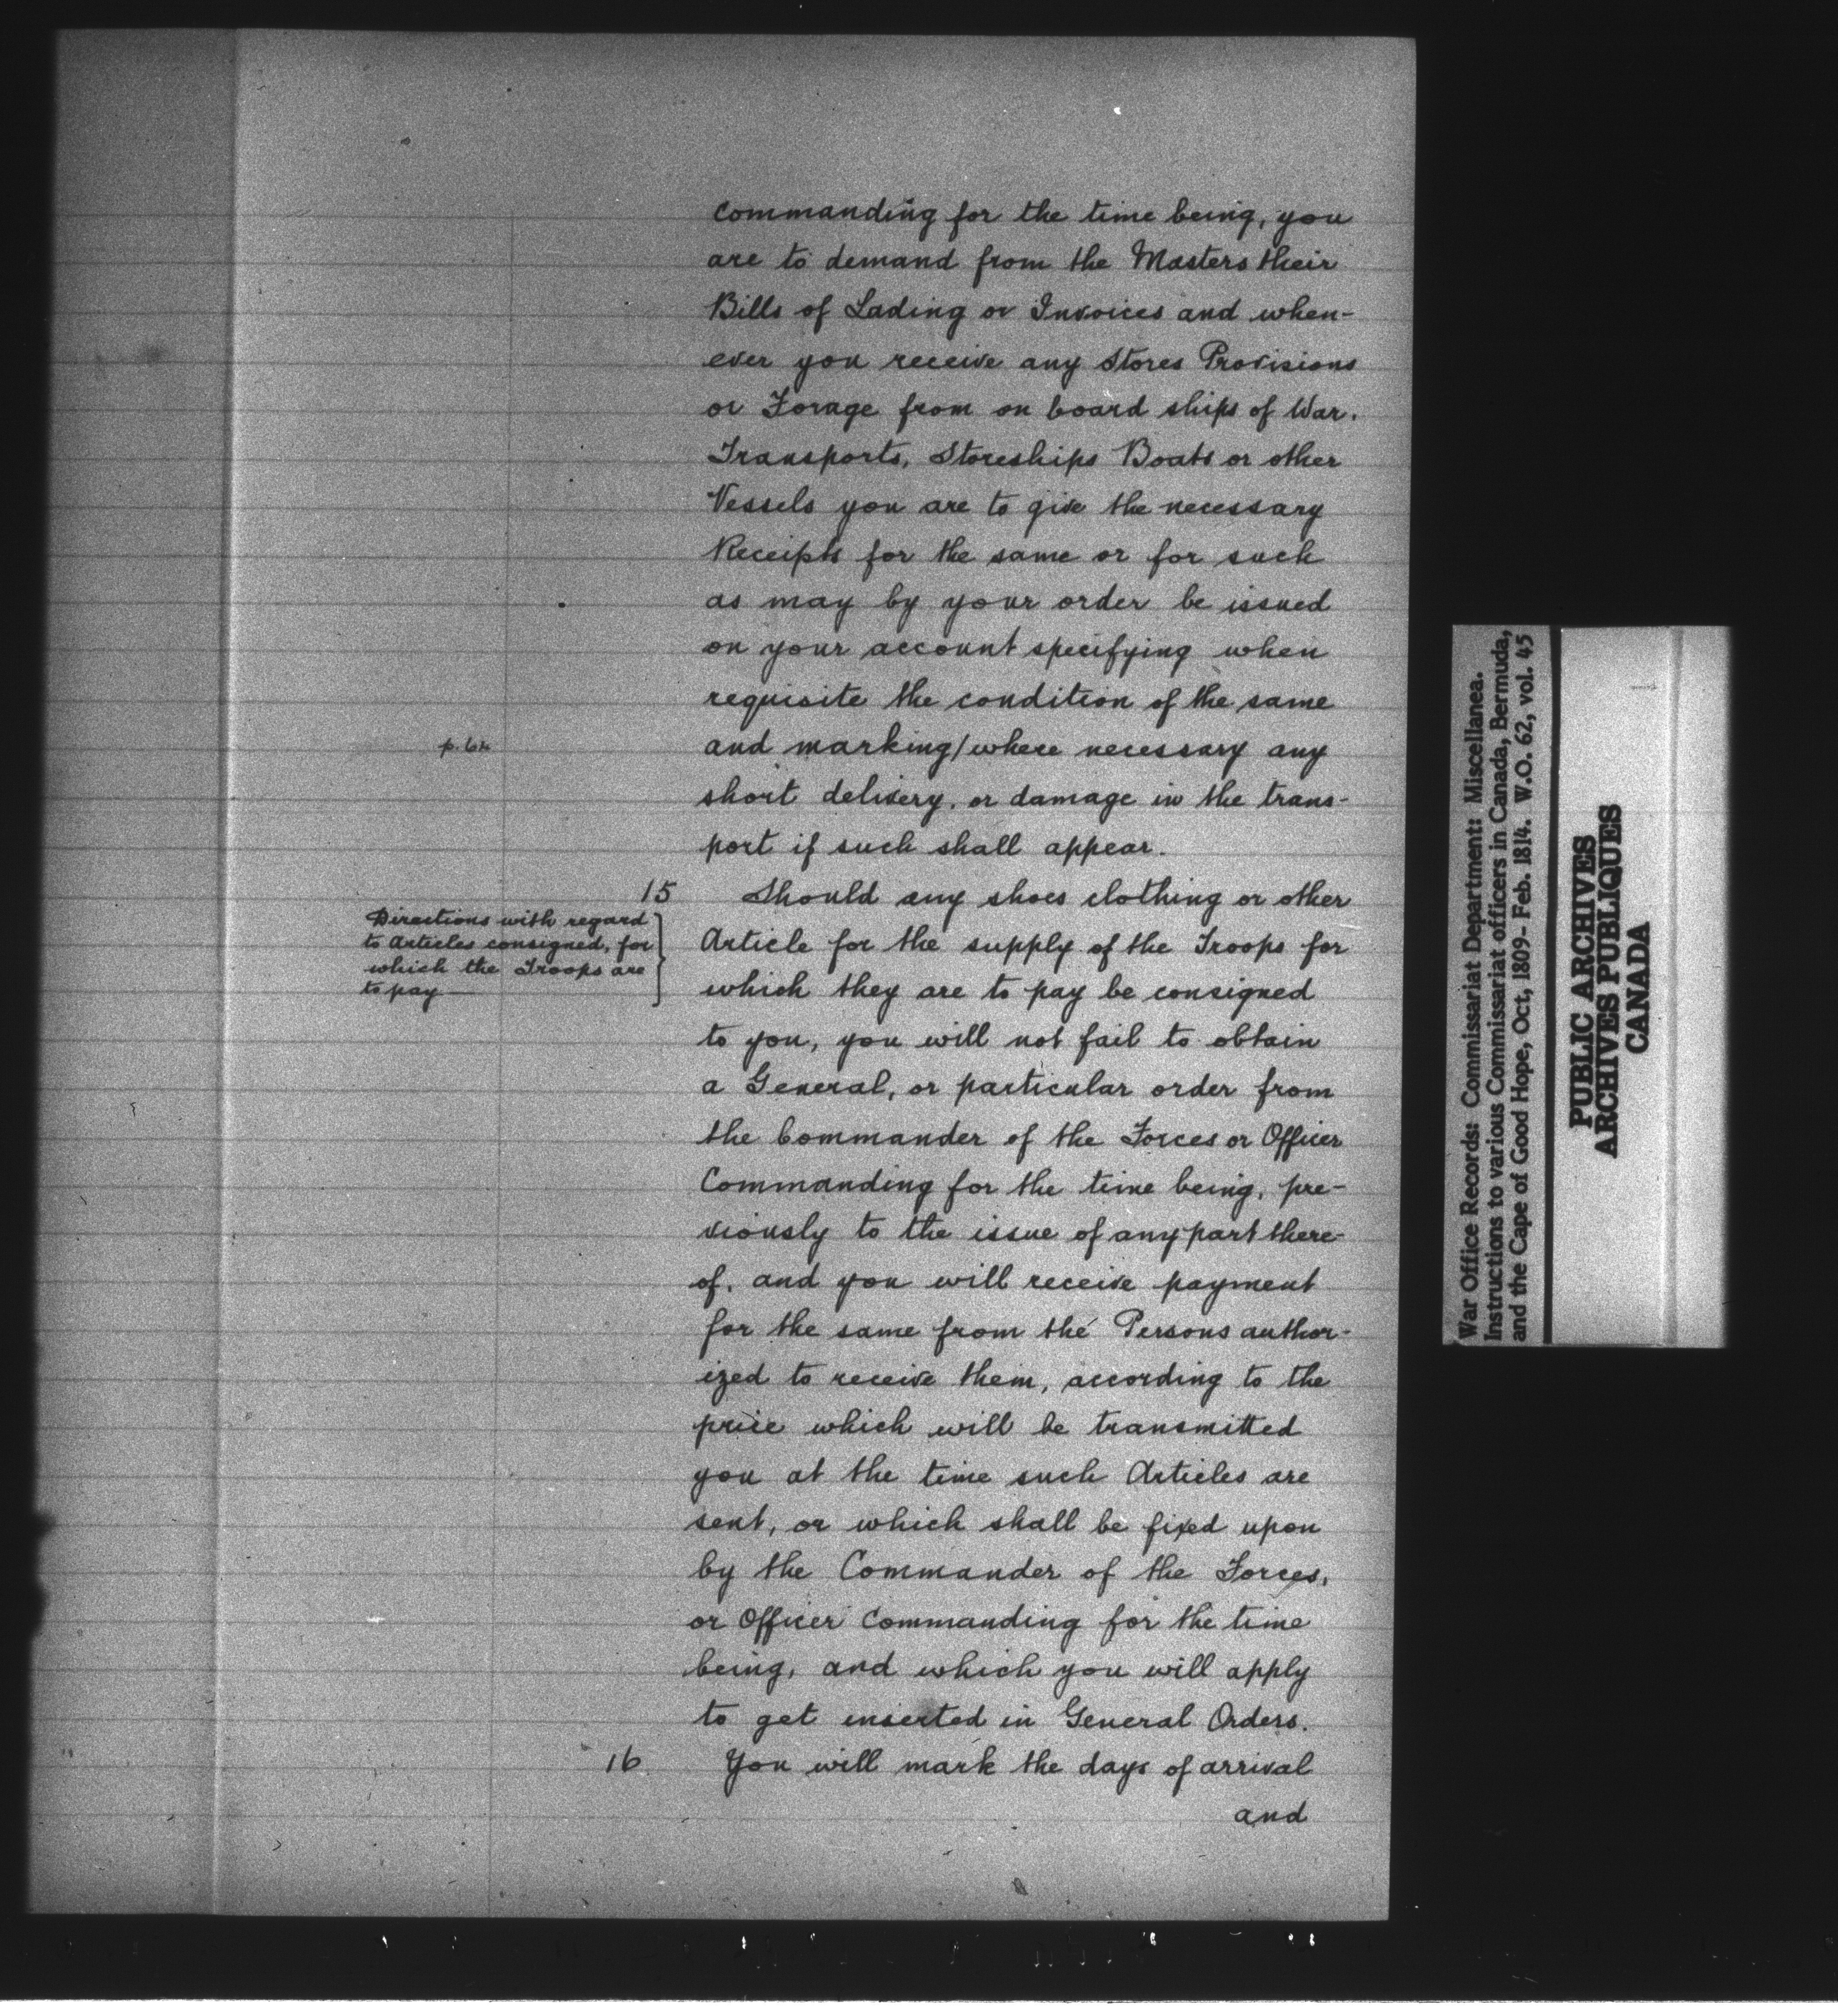 commanding for the time being, you
are to demand from the Masters their
Bills of Lading or Invoices and when-
ever you receive any Stores Provisions
or Forage from on board ships of War.
Transports, Storeships Boats or other
Vessels you are to give the necessary
Receipts for the same or for such
as may by your order be issued
on your account specifying when
requisite the condition of the same
and marking/where necessary any
short delivery, or damage in the trans-
port if such shall appear.
15 Should any shoes clothing or other
Directions with regard
to Articles consigned, for
which the Troops are
to pay
Article for the supply of the Troops for
which they are to pay be consigned
to you, you will not fail to obtain
a General, or particular order from
the Commander of the Forces or Officer
Commanding for the time being, pre-
viously to the issue of any part there-
of, and you will receive payment
for the same from the Persons author-
ized to receive them, according to the
price which will be transmitted
you at the time such Articles are
sent, or which shall be fixed upon
by the Commander of the Forces,
or Officer Commanding for the time
being, and which you will apply
to get inserted in General Orders.
16 You will mark the days of arrival
and
War Office Records: Commissariat Department: Miscellanea.
Instructions to various Commissariat officers in Canada, Bermuda,
and the Cape of Good Hope, Oct, 1809- Feb. 1814. W.O. 62, vol. 45
PUBLIC ARCHIVES
ARCHIVES PUBLIQUES
CANADA